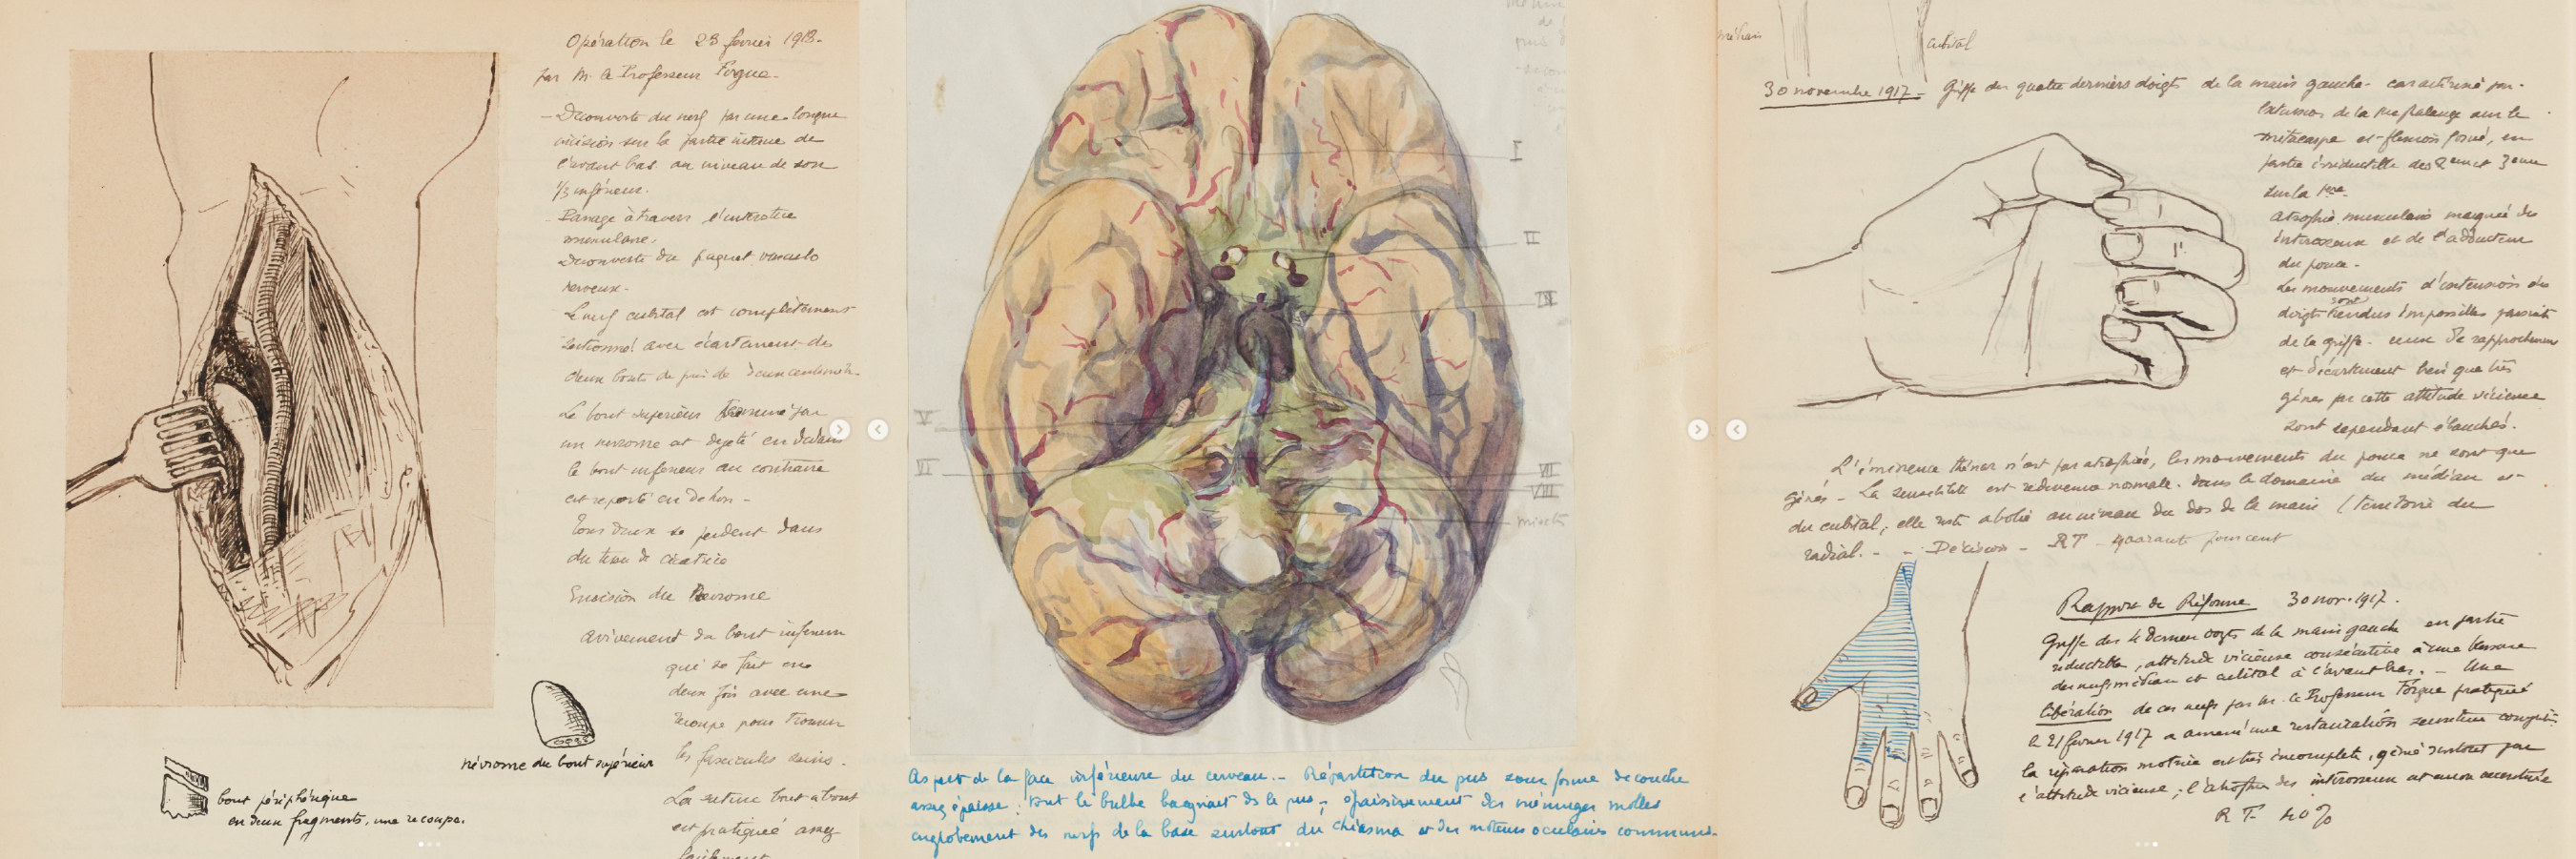 Opération le 23 février 1918-
par M. le Professeur Forgue-
- Découverte du nerf par une longue
incision sur la partie interne de
l'avant bras au niveau de son
1/3 inférieur.
- Passage à travers l'interstice
musculaire.
Découverte du paquet vasculo
nerveux-
Le nerf cubital est complètement
sectionné avec écartement des
deux bouts de près de deux centimèt-
Le bout supérieur terminé par
un nevrome est dejeté en dedans
le bout inférieur au contraire
est reporté en dehors -
Tous deux se perdent dans
du tissu de cicatrice
Excision du Nevrome
avivement du bout inférieur
qui se fait en
deux fois avec une
recoupe pour trouver
les fascicules sains.
La suture bout a bout
est pratiquée assez
facilement
névrome du bout supérieur
bout périphérique
en deux fragments, une recoupe.
I
II
III
V
VI
VII
VIII
Aspect de la face inférieure du cerveau.- Répartition du pus sous forme de couche
assez épaisse; tout le bulbe baignait ds le pus; épaississement des méninges molles
englobement des nerfs de la base surtout du chiasma et des moteurs oculaires communs.
cubital
30 novembre 1917- Griffe des quatre derniers doigts de la main gauche- caractérisé par-
extension de la 1re phalange sur le
métacarpe et flexion forcé, en
partie irréductible des 2eme et 3eme
sur la 1ère
Atrophie musculaire marquée des
interosseux et de l'adducteur
du pouce-
Les mouvements d'extension des
doigts sont rendus impossibles par suite
de la griffe- ceux de rapprochement
et d'écartement bien que très
génés par cette attitude vicieuse
sont cependant ébauchés.
L'éminence thénar n'est pas atrophiée, les mouvements du pouce ne sont que
génés- La sensibilité est redevenue normale dans le domaine du médian et-
du cubital; elle reste abolie au niveau du dos de la main (territoire du
radial.- - Décision- RT- quarante pour cent
Rapport de Réforme 30 nov. 1917.
Griffe des 4 derniers doigts de la main gauche en partie
réductible, attitude vicieuse consécutive à une blessure
des nerfs médian et cubital à l'avant bras.- Une
libération de ces nerfs par Mr. le Professeur Forgue pratiquée
le 21 février 1917 a amené une restauration sensitive complète
la réparation motrice est très incomplète, géné surtout par
l'attitude vicieuse; l'atrophie des interosseux est encore accentuée
RT 40%